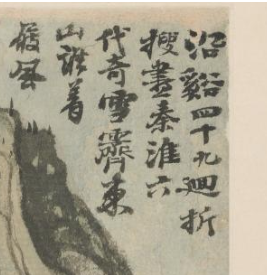 沿谿四十九廻折
搜盡秦淮六
代奇雪霽東
山誰著
屐風